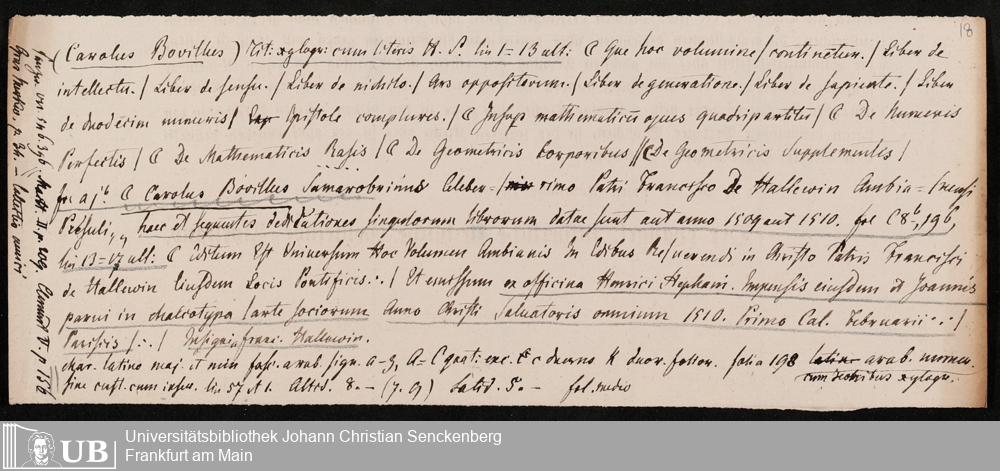 18
(Carolus Bovillus) Tit: xylogr: cum literis H. S. lin 1 = 13 ult: C Que hoc volumine / continetur. / Liber de
intellectu. / Liber de sensu. / Liber de nichilo. / Ars oppositorum. / Liber de generatione. / Liber de sapiente. / Liber
de duodecim numeris / Epistole complures. / C Insup mathematicu opus quadripartitu / C De Numeris
Perfectis / C De Mathematicis Rosis / C De Geometricis Corporibus // C De Geometricis Supplementis /
C Carolus Bovillus Samarobrinus Celeber = / rimo Patri Francisco De Hallewin Ambia = / nensi
Presuli,, haec et sequentes dedicationes singulorum librorum datae sunt aut anno 1509 aut 1510. fol C 8b, 196,
lin 13 = 17 ult: C Editum Est Universum Hoc Volumen Ambianis In Edibus Re / verendi in Christo Patris Francisci
de Hallewin Eiusdem Locis Pontificis ∴ / Et emissum ex officina Henrici Stephani. Impensis eiusdem et Joannis
parui in chalcotypa / arte sociorum Anno Christi Salvatoris omnium 1510. Primo Cal. Februarii ∴ /
Parisiis / ∴ / Insignia franc. Hallewin.
char. latino maj. et min fasc. arab. sign. a-z, A-C quat: exc. c duerno K fol. folia 198 arab. numer.
fine cust. cum inser. lin 57 et 1. Altid. 8. - (7. 9) Latid. 5. - fol. medio
cum xylogr.
Panzer VII 546. 396 Maitt. II. p. 209. Clement V. p 156